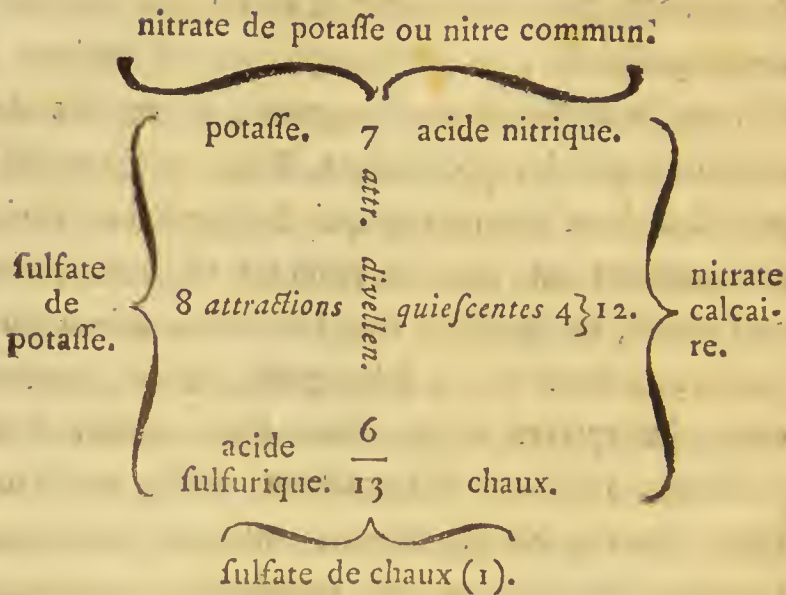 nitrate de potaſſe ou nitre commun.
potaſſe. 7 acide nitrique.
attr. divellen.
ſulfate
de
potaſſe.
8 attractions quieſcentes 4}12.
nitrate
calcai-
re.
acide
ſulfurique. 6
13 chaux.
ſulfate de chaux (1).